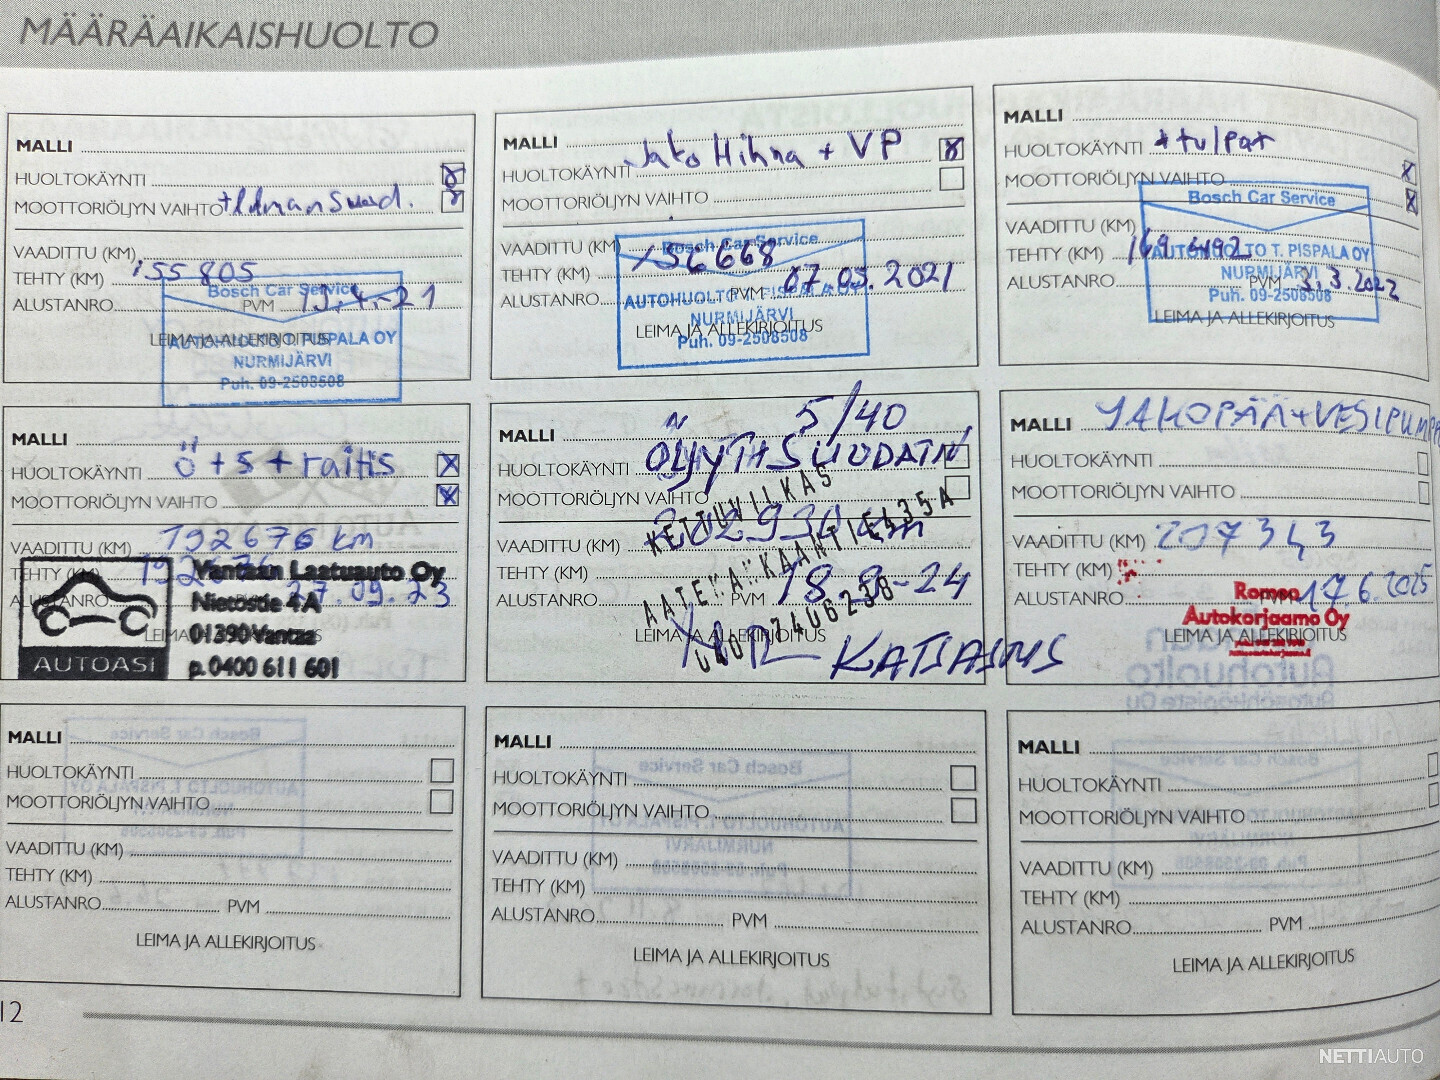 MÄÄRÄAIKAISHUOLTO
MALLI
HUOLTOKÄYNTI
MOOTTORIÖLJYN VAIHTO +Ilmansuod.
VAADITTU (KM)
TEHTY (KM) 155 805
ALUSTANRO PVM 13.4-21
LEIMA JA ALLEKIRJOITUS
Bosch Car Service
AUTOHUOLTO T. PISPALA OY
NURMIJÄRVI
Puh. 09-2508508
MALLI
HUOLTOKÄYNTI Jako Hihna + VP
MOOTTORIÖLJYN VAIHTO
VAADITTU (KM)
TEHTY (KM) 156668
ALUSTANRO PVM 07.05.2021
LEIMA JA ALLEKIRJOITUS
Bosch Car Service
AUTOHUOLTO T. PISPALA OY
NURMIJÄRVI
Puh. 09-2508508
MALLI
HUOLTOKÄYNTI + tulpat
MOOTTORIÖLJYN VAIHTO
VAADITTU (KM)
TEHTY (KM)
ALUSTANRO PVM 3.3.2022
LEIMA JA ALLEKIRJOITUS
Bosch Car Service
AUTOHUOLTO T. PISPALA OY
NURMIJÄRVI
Puh. 09-2508508
MALLI
HUOLTOKÄYNTI ö + s + raitis
MOOTTORIÖLJYN VAIHTO
VAADITTU (KM) 192676 km
TEHTY (KM) 192676
ALUSTANRO PVM 27.09.23
LEIMA JA ALLEKIRJOITUS
AUTOASI
Vantaan Laatuauto Oy
Nietostie 4 A
01390 Vantaa
p. 0400 611 601
MALLI 5/40
HUOLTOKÄYNTI ÖLJYT+SUODATIN
MOOTTORIÖLJYN VAIHTO
VAADITTU (KM) 202930 km
TEHTY (KM)
ALUSTANRO PVM 18-9-24
LEIMA JA ALLEKIRJOITUS
KETTUVILKAS
KATSASTUS
MALLI JAKOPÄÄ+VESIPUMPPU
HUOLTOKÄYNTI
MOOTTORIÖLJYN VAIHTO
VAADITTU (KM) 207343
TEHTY (KM)
ALUSTANRO PVM 17.6.2025
LEIMA JA ALLEKIRJOITUS
Romeo
Autokorjaamo Oy
MALLI
HUOLTOKÄYNTI
MOOTTORIÖLJYN VAIHTO
VAADITTU (KM)
TEHTY (KM)
ALUSTANRO PVM
LEIMA JA ALLEKIRJOITUS
MALLI
HUOLTOKÄYNTI
MOOTTORIÖLJYN VAIHTO
VAADITTU (KM)
TEHTY (KM)
ALUSTANRO PVM
LEIMA JA ALLEKIRJOITUS
MALLI
HUOLTOKÄYNTI
MOOTTORIÖLJYN VAIHTO
VAADITTU (KM)
TEHTY (KM)
ALUSTANRO PVM
LEIMA JA ALLEKIRJOITUS
12
NETTIAUTO